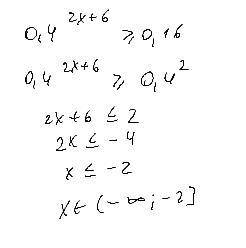 0,4^{2x+6} ≥ 0,16
0,4^{2x+6} ≥ 0,4^2
2x+6 ≤ 2
2x ≤ -4
x ≤ -2
x ∈ (-∞; -2]